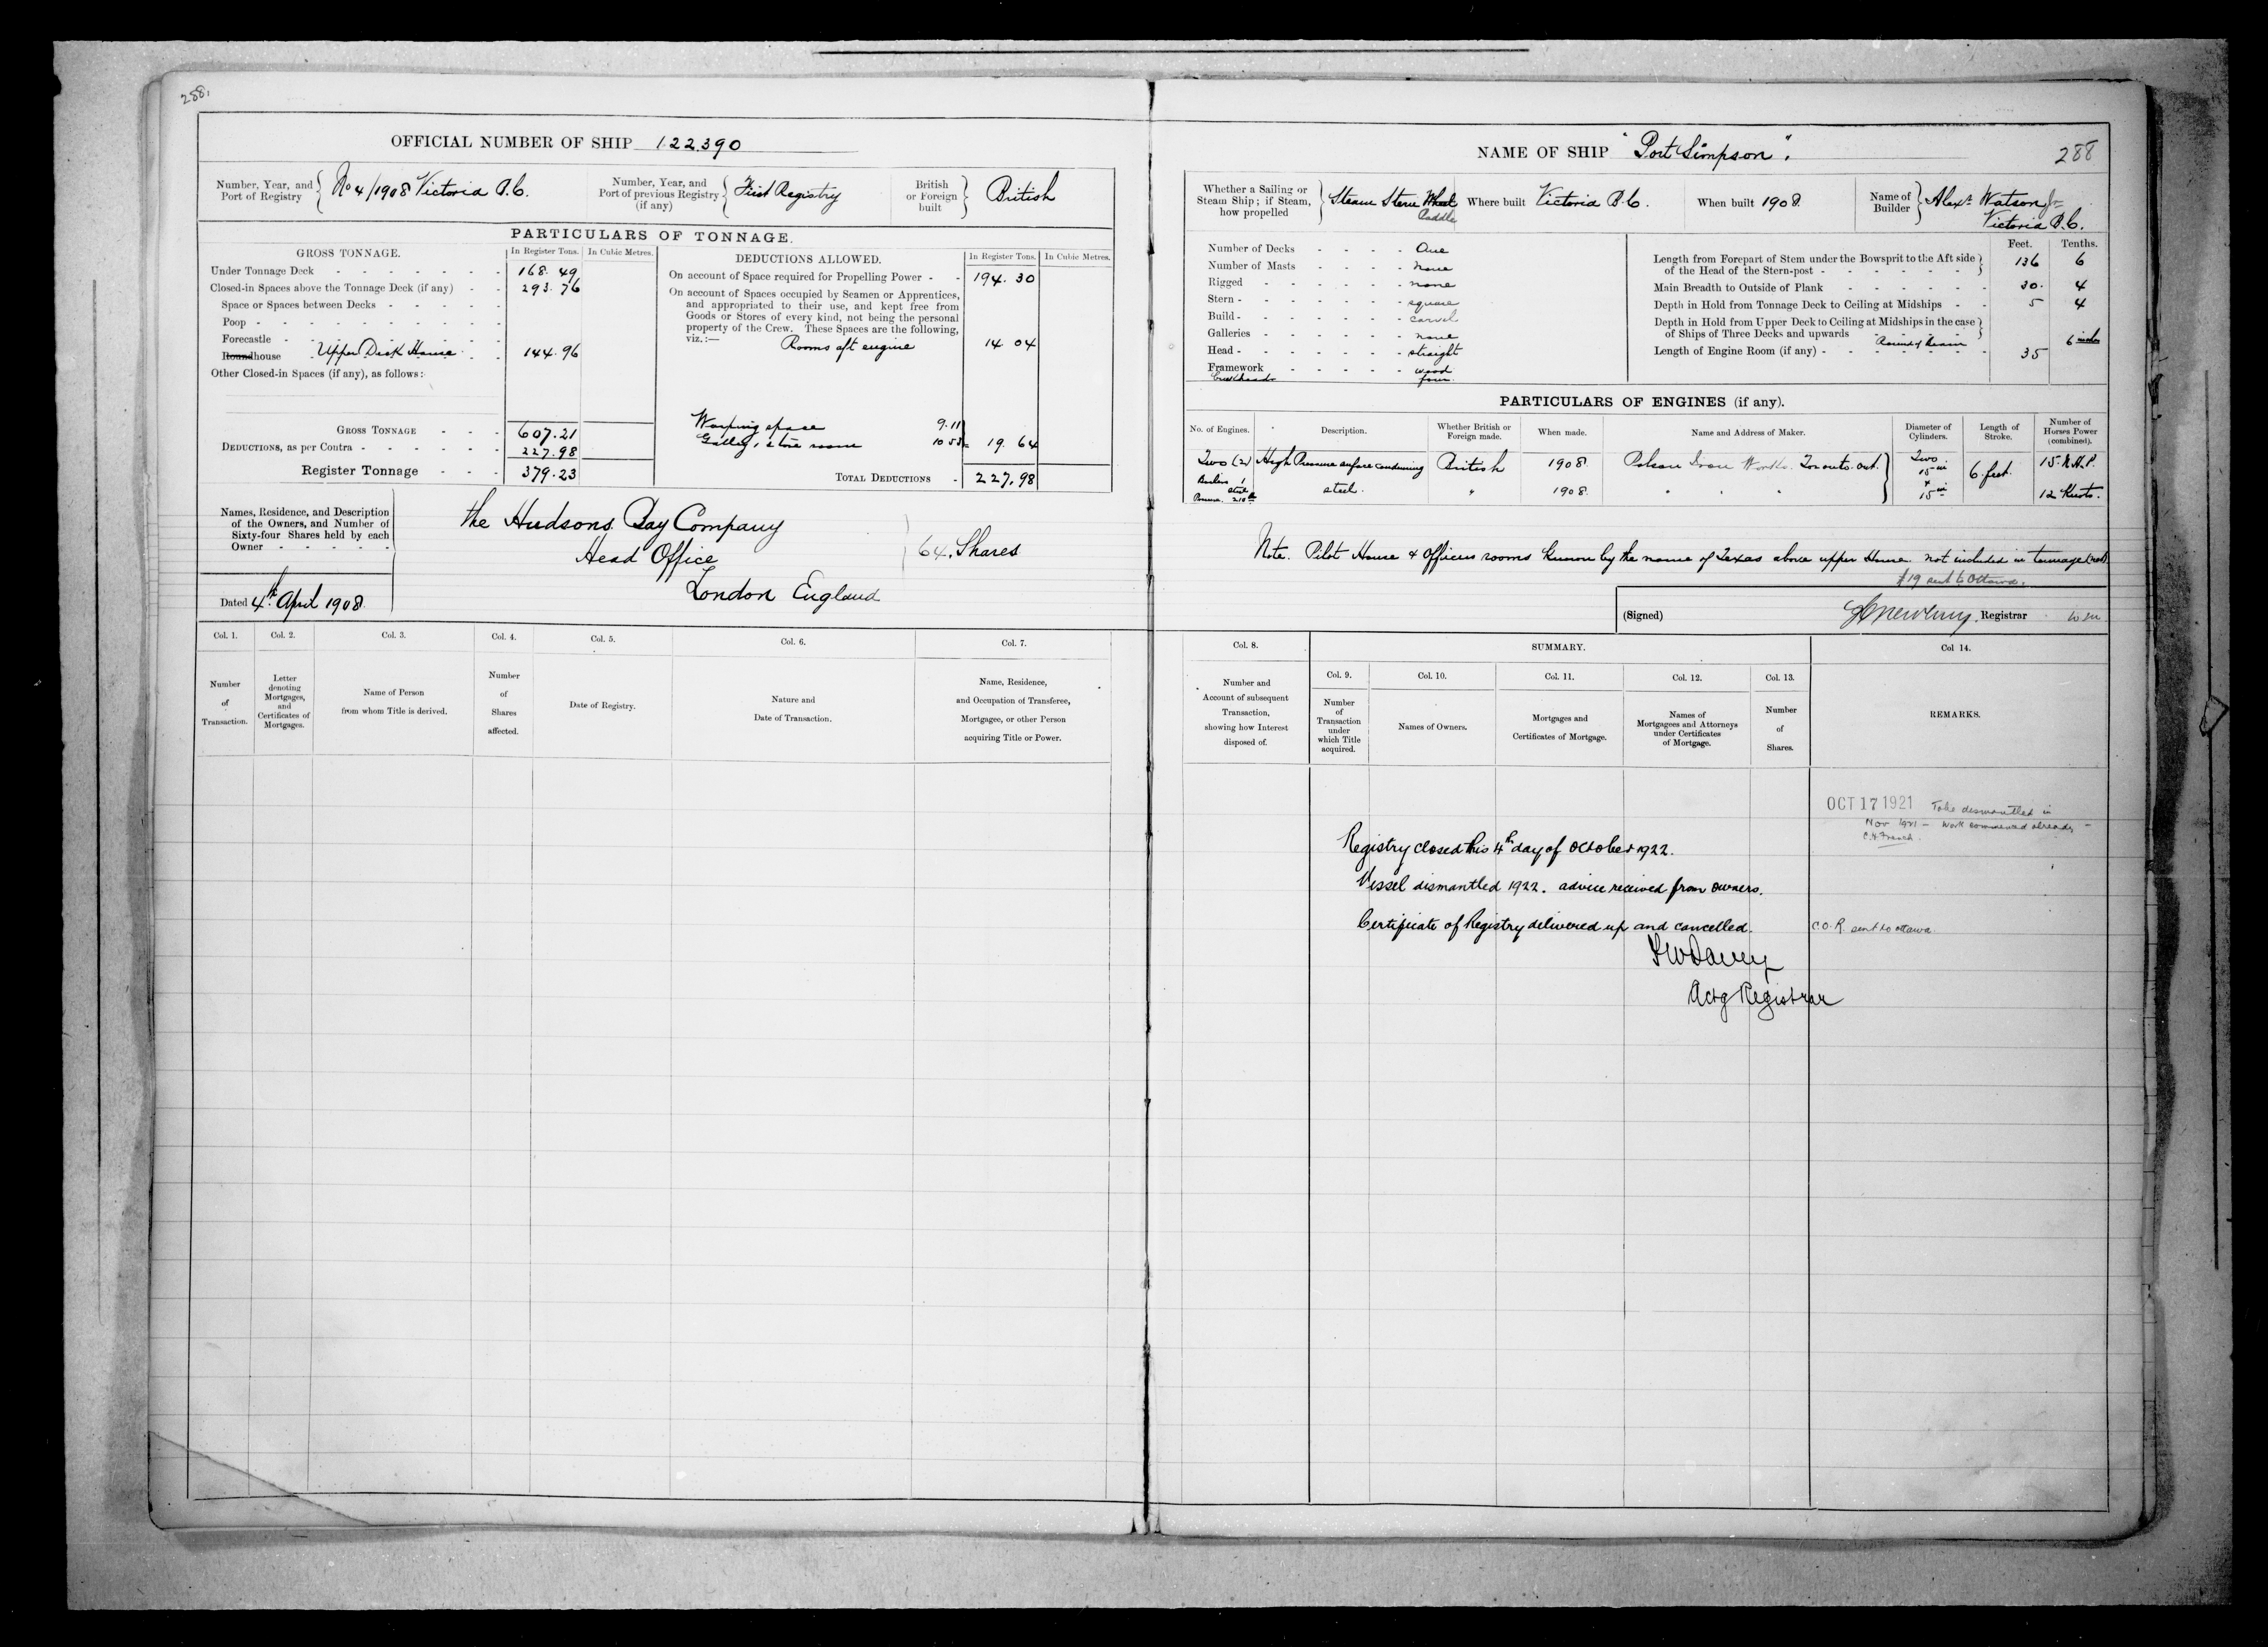 288.
OFFICIAL NUMBER OF SHIP 122390
Number, Year, and Port of Registry No 4/1908 Victoria B.C.
Number, Year, and Port of previous Registry (if any) First Registry
British or Foreign built British
PARTICULARS OF TONNAGE.
GROSS TONNAGE. In Register Tons. In Cubic Metres.
Under Tonnage Deck 168.49
Closed-in Spaces above the Tonnage Deck (if any) 293.76
Space or Spaces between Decks
Poop
Forecastle
Roundhouse Upper Deck House 144.96
Other Closed-in Spaces (if any), as follows:
GROSS TONNAGE 607.21
DEDUCTIONS, as per Contra 227.98
Register Tonnage 379.23
DEDUCTIONS ALLOWED. In Register Tons. In Cubic Metres.
On account of Space required for Propelling Power 194.30
On account of Spaces occupied by Seamen or Apprentices,
and appropriated to their use, and kept free from
Goods or Stores of every kind, not being the personal
property of the Crew. These Spaces are the following,
viz.:—
Rooms aft engine 14 04
Warping space 9.11
Galley, store room 10 53 = 19. 64
TOTAL DEDUCTIONS 227.98
Names, Residence, and Description
of the Owners, and Number of
Sixty-four Shares held by each
Owner
the Hudsons Bay Company
Head Office
London England
64. Shares
Dated 4th April 1908
Col. 1. Col. 2. Col. 3. Col. 4. Col. 5. Col. 6. Col. 7.
Number of Transaction.
Letter denoting Mortgages, and Certificates of Mortgages.
Name of Person from whom Title is derived.
Number of Shares affected.
Date of Registry.
Nature and Date of Transaction.
Name, Residence, and Occupation of Transferee, Mortgagee, or other Person acquiring Title or Power.
NAME OF SHIP "Port Simpson".
288
Whether a Sailing or Steam Ship; if Steam, how propelled Steam Stern Wheel Paddle
Where built Victoria B.C.
When built 1908
Name of Builder Alexr Watson Jr
Victoria B.C.
Number of Decks One
Number of Masts none
Rigged none
Stern square
Build carvel
Galleries none
Head straight
Framework wood
bulkheads four
Feet. Tenths.
Length from Forepart of Stem under the Bowsprit to the Aft side of the Head of the Stern-post 136 6
Main Breadth to Outside of Plank 30. 4
Depth in Hold from Tonnage Deck to Ceiling at Midships 5 4
Depth in Hold from Upper Deck to Ceiling at Midships in the case of Ships of Three Decks and upwards
Round of beam 6 inches
Length of Engine Room (if any) 35
PARTICULARS OF ENGINES (if any).
No. of Engines. Description. Whether British or Foreign made. When made. Name and Address of Maker. Diameter of Cylinders. Length of Stroke. Number of Horses Power (combined).
Two (2) High Pressure surface condensing British 1908 Polson Iron Works. Toronto. Ont. Two 15 in + 15 in 6. feet. 15. N.H.P.
Boilers 1 steel steel. " 1908 " " " 12 Knots.
Note. Pilot House & Officers rooms known by the name of Texas above upper House. not included in tonnage
# 19 sent to Ottawa.
(Signed) Registrar
Col. 8. SUMMARY. Col 14.
Col. 9. Col. 10. Col. 11. Col. 12. Col. 13.
Number and Account of subsequent Transaction, showing how Interest disposed of.
Number of Transaction under which Title acquired.
Names of Owners.
Mortgages and Certificates of Mortgage.
Names of Mortgagees and Attorneys under Certificates of Mortgage.
Number of Shares.
REMARKS.
OCT 17 1921 To be dismantled in
Nov 1921 - Work commenced already -
C.H. French.
Registry closed this 4th day of October 1922.
Vessel dismantled 1922. advice received from owners.
Certificate of Registry delivered up and cancelled. C.O.R. sent to ottawa
Actg Registrar